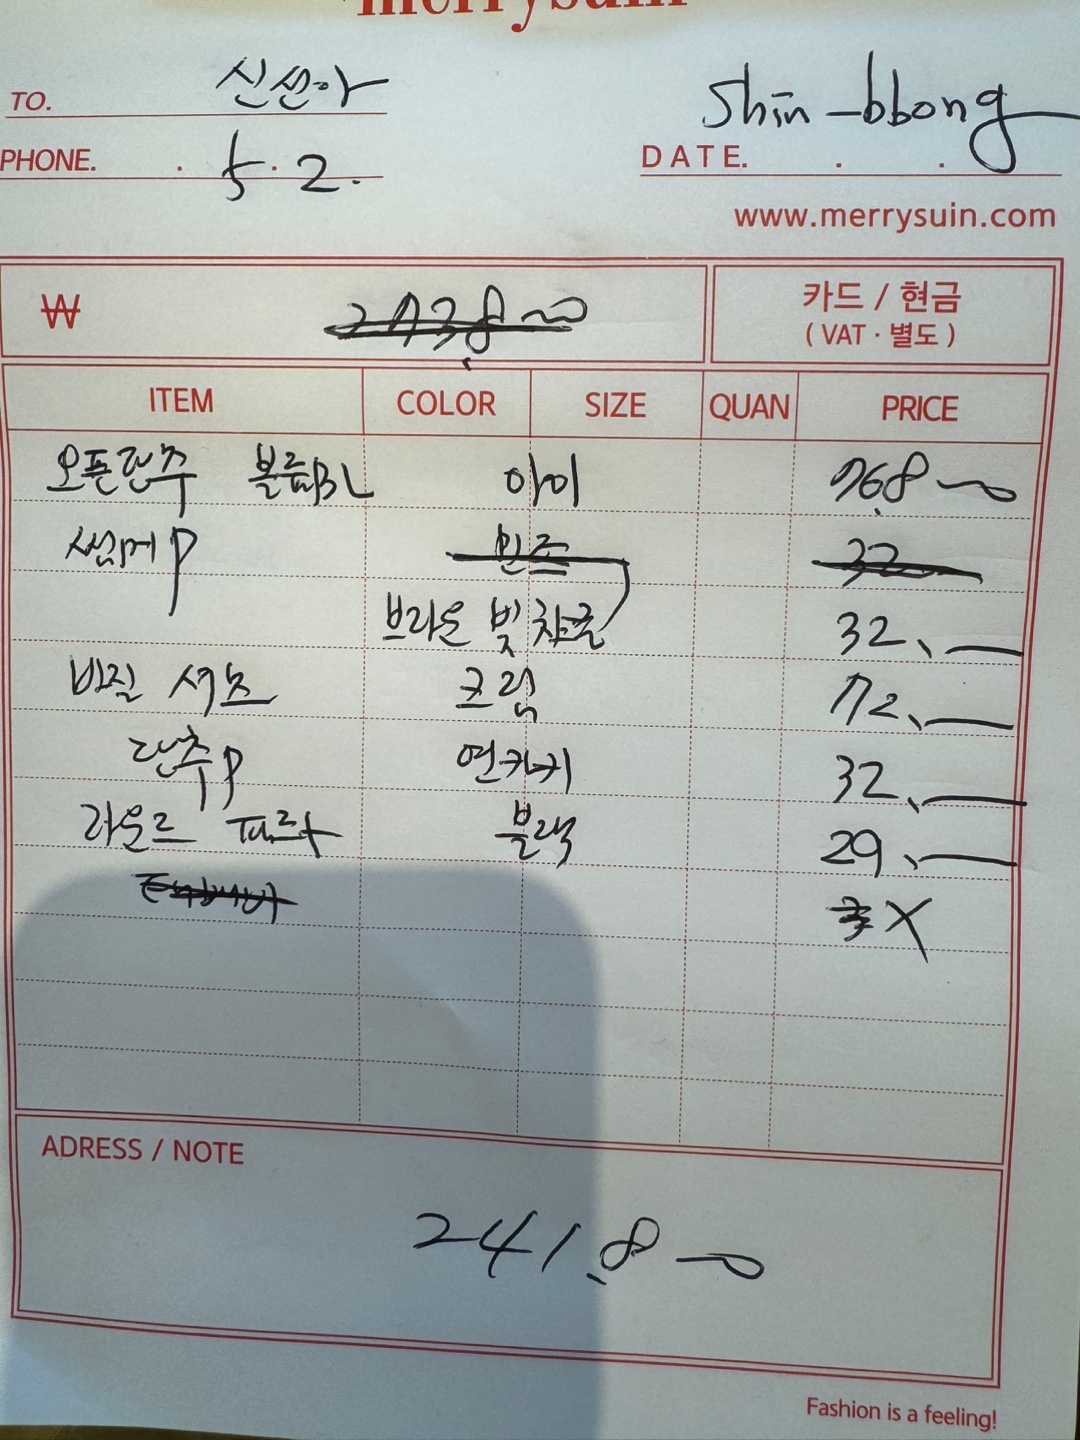 merrysuin
TO. 신선아 Shin-bbong
PHONE. . 5.2. DATE. . .
www.merrysuin.com
₩ 273.800 카드 / 현금
( VAT · 별도 )
ITEM COLOR SIZE QUAN PRICE
오픈단추 볼륨BL 아이 76.800
썸머P 민즈 32
브라운 빛차콜 32,
비질 셔츠 크림 72,
단추P 연카키 32,
라운드 블랙 29,
X
ADRESS / NOTE
241.800
Fashion is a feeling!